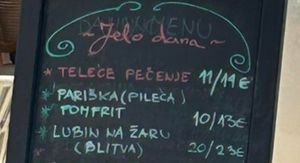 DAILY MENU
~ Jelo dana ~
* TELEĆE PEČENJE 11/14€
* PARIŠKA (PILEĆA)
* POMFRIT 10/13€
* LUBIN NA ŽARU
(BLITVA) 20/23€